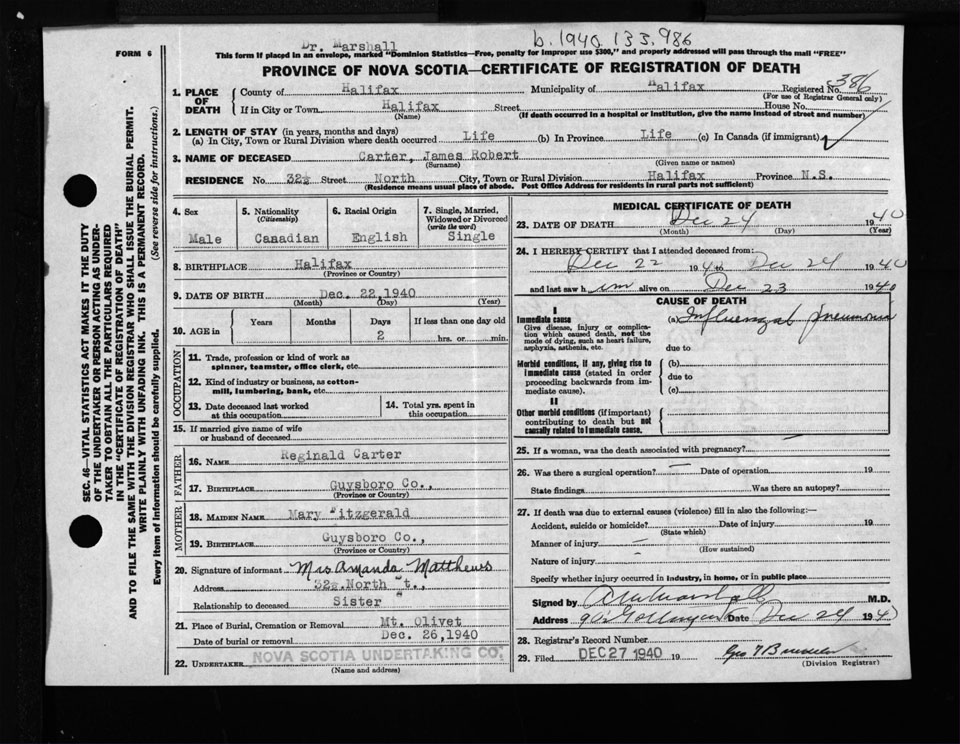 Dr. Marshall
b. 1940. 133.986
FORM 6
This form if placed in an envelope, marked "Dominion Statistics—Free, penalty for improper use $300," and properly addressed will pass through the mail "FREE"
PROVINCE OF NOVA SCOTIA—CERTIFICATE OF REGISTRATION OF DEATH
1. PLACE OF DEATH
County of Halifax Municipality of Halifax Registered No. 386
(For use of Registrar General only)
If in City or Town Halifax Street House No.
(Name) (If death occurred in a hospital or institution, give the name instead of street and number)
2. LENGTH OF STAY (in years, months and days)
(a) In City, Town or Rural Division where death occurred Life (b) In Province Life (c) In Canada (if immigrant)
3. NAME OF DECEASED Carter, James Robert
(Surname) (Given name or names)
RESIDENCE No. 32½ Street North City, Town or Rural Division Halifax Province N.S.
(Residence means usual place of abode. Post Office Address for residents in rural parts not sufficient)
4. Sex
Male
5. Nationality
(Citizenship)
Canadian
6. Racial Origin
English
7. Single, Married, Widowed or Divorced
(write the word)
Single
8. BIRTHPLACE Halifax
(Province or Country)
9. DATE OF BIRTH Dec. 22, 1940
(Month) (Day) (Year)
10. AGE in
Years Months Days If less than one day old
2 hrs. or min.
OCCUPATION
11. Trade, profession or kind of work as
spinner, teamster, office clerk, etc
12. Kind of industry or business, as cotton-
mill, lumbering, bank, etc
13. Date deceased last worked
at this occupation
14. Total yrs. spent in
this occupation
15. If married give name of wife
or husband of deceased
FATHER
16. NAME Reginald Carter
17. BIRTHPLACE Guysboro Co.,
(Province or Country)
MOTHER
18. MAIDEN NAME Mary Fitzgerald
19. BIRTHPLACE Guysboro Co.,
(Province or Country)
20. Signature of informant Mrs Amanda Matthews
Address 32½ North St.,
Relationship to deceased Sister
21. Place of Burial, Cremation or Removal Mt. Olivet
Date of burial or removal Dec. 26, 1940
22. UNDERTAKER NOVA SCOTIA UNDERTAKING CO.
(Name and address)
MEDICAL CERTIFICATE OF DEATH
23. DATE OF DEATH Dec 24 1940
(Month) (Day) (Year)
24. I HEREBY CERTIFY that I attended deceased from:
Dec 22 1940 to Dec 24 1940
and last saw h im alive on Dec 23 1940
CAUSE OF DEATH
I
Immediate cause
Give disease, injury or complica-
tion which caused death, not the
mode of dying, such as heart failure,
asphyxia, asthenia, etc.
(a) Influenzal pneumonia
due to
Morbid conditions, if any, giving rise to
immediate cause (stated in order
proceeding backwards from im-
mediate cause).
(b)
due to
(c)
II
Other morbid conditions (if important)
contributing to death but not
causally related to immediate cause.
25. If a woman, was the death associated with pregnancy?
26. Was there a surgical operation? Date of operation 19
State findings Was there an autopsy?
27. If death was due to external causes (violence) fill in also the following:—
Accident, suicide or homicide? Date of injury 19
(State which)
Manner of injury
(How sustained)
Nature of injury
Specify whether injury occurred in industry, in home, or in public place
Signed by Marshall M.D.
Address Date Dec 24 1940
28. Registrar's Record Number
29. Filed DEC 27 1940 19
(Division Registrar)
SEC. 46—VITAL STATISTICS ACT MAKES IT THE DUTY
OF THE UNDERTAKER OR PERSON ACTING AS UNDER-
TAKER TO OBTAIN ALL THE PARTICULARS REQUIRED
IN THE "CERTIFICATE OF REGISTRATION OF DEATH"
AND TO FILE THE SAME WITH THE DIVISION REGISTRAR WHO SHALL ISSUE THE BURIAL PERMIT.
WRITE PLAINLY WITH UNFADING INK. THIS IS A PERMANENT RECORD.
Every item of information should be carefully supplied. (See reverse side for instructions.)